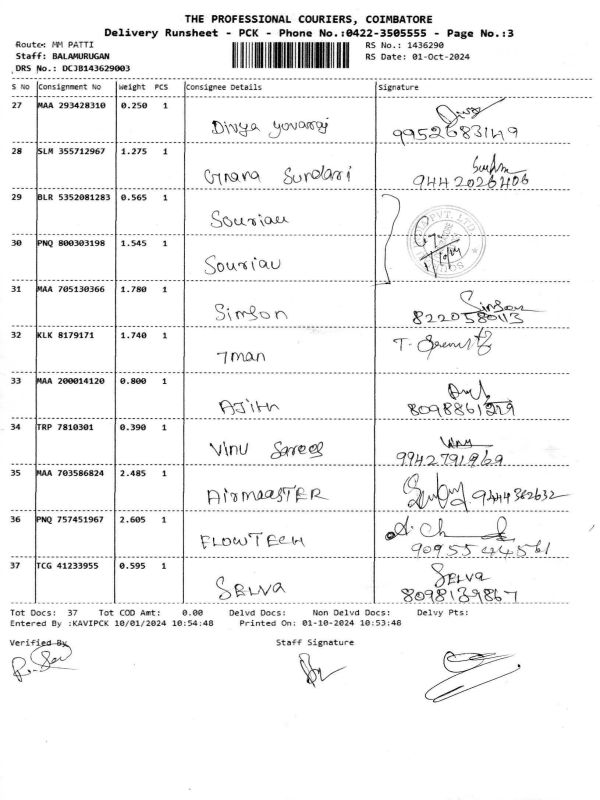 THE PROFESSIONAL COURIERS, COIMBATORE
Delivery Runsheet - PCK - Phone No.:0422-3505555 - Page No.:3
Route: MM PATTI RS No.: 1436290
Staff: BALAMURUGAN RS Date: 01-Oct-2024
DRS No.: DCJB143629003
S No Consignment No Weight PCS Consignee Details Signature
27 MAA 293428310 0.250 1
Divya yovaraj 9952683149
28 SLM 355712967 1.275 1
Gnana Sundari 9442026406
29 BLR 5352081283 0.565 1
Souriau
30 PNQ 800303198 1.545 1
Souriau
31 MAA 705130366 1.780 1 Simson
Simson 8220580113
32 KLK 8179171 1.740 1
7man T.
33 MAA 200014120 0.800 1
AJith 8098861229
34 TRP 7810301 0.390 1
Vinu Sarees 9942791969
35 MAA 703586824 2.485 1
AirmasTER 9244382632
36 PNQ 757451967 2.605 1
FLOWTECH 9095544561
37 TCG 41233955 0.595 1 SELVA
SELVA 8098139867
Tot Docs: 37 Tot COD Amt: 0.00 Delvd Docs: Non Delvd Docs: Delvy Pts:
Entered By :KAVIPCK 10/01/2024 10:54:48 Printed On: 01-10-2024 10:53:48
Verified By Staff Signature